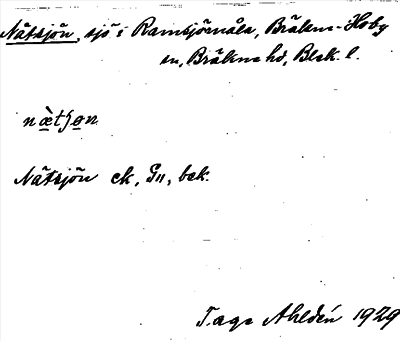 Nätsjön, sjö i Ramsjömåla, Bräkne-Hoby
sn, Bräkne hd, Blek. l.
næ̀tʃən
Nätsjön ek, Gll, bek.
Tage Ahldén 1929